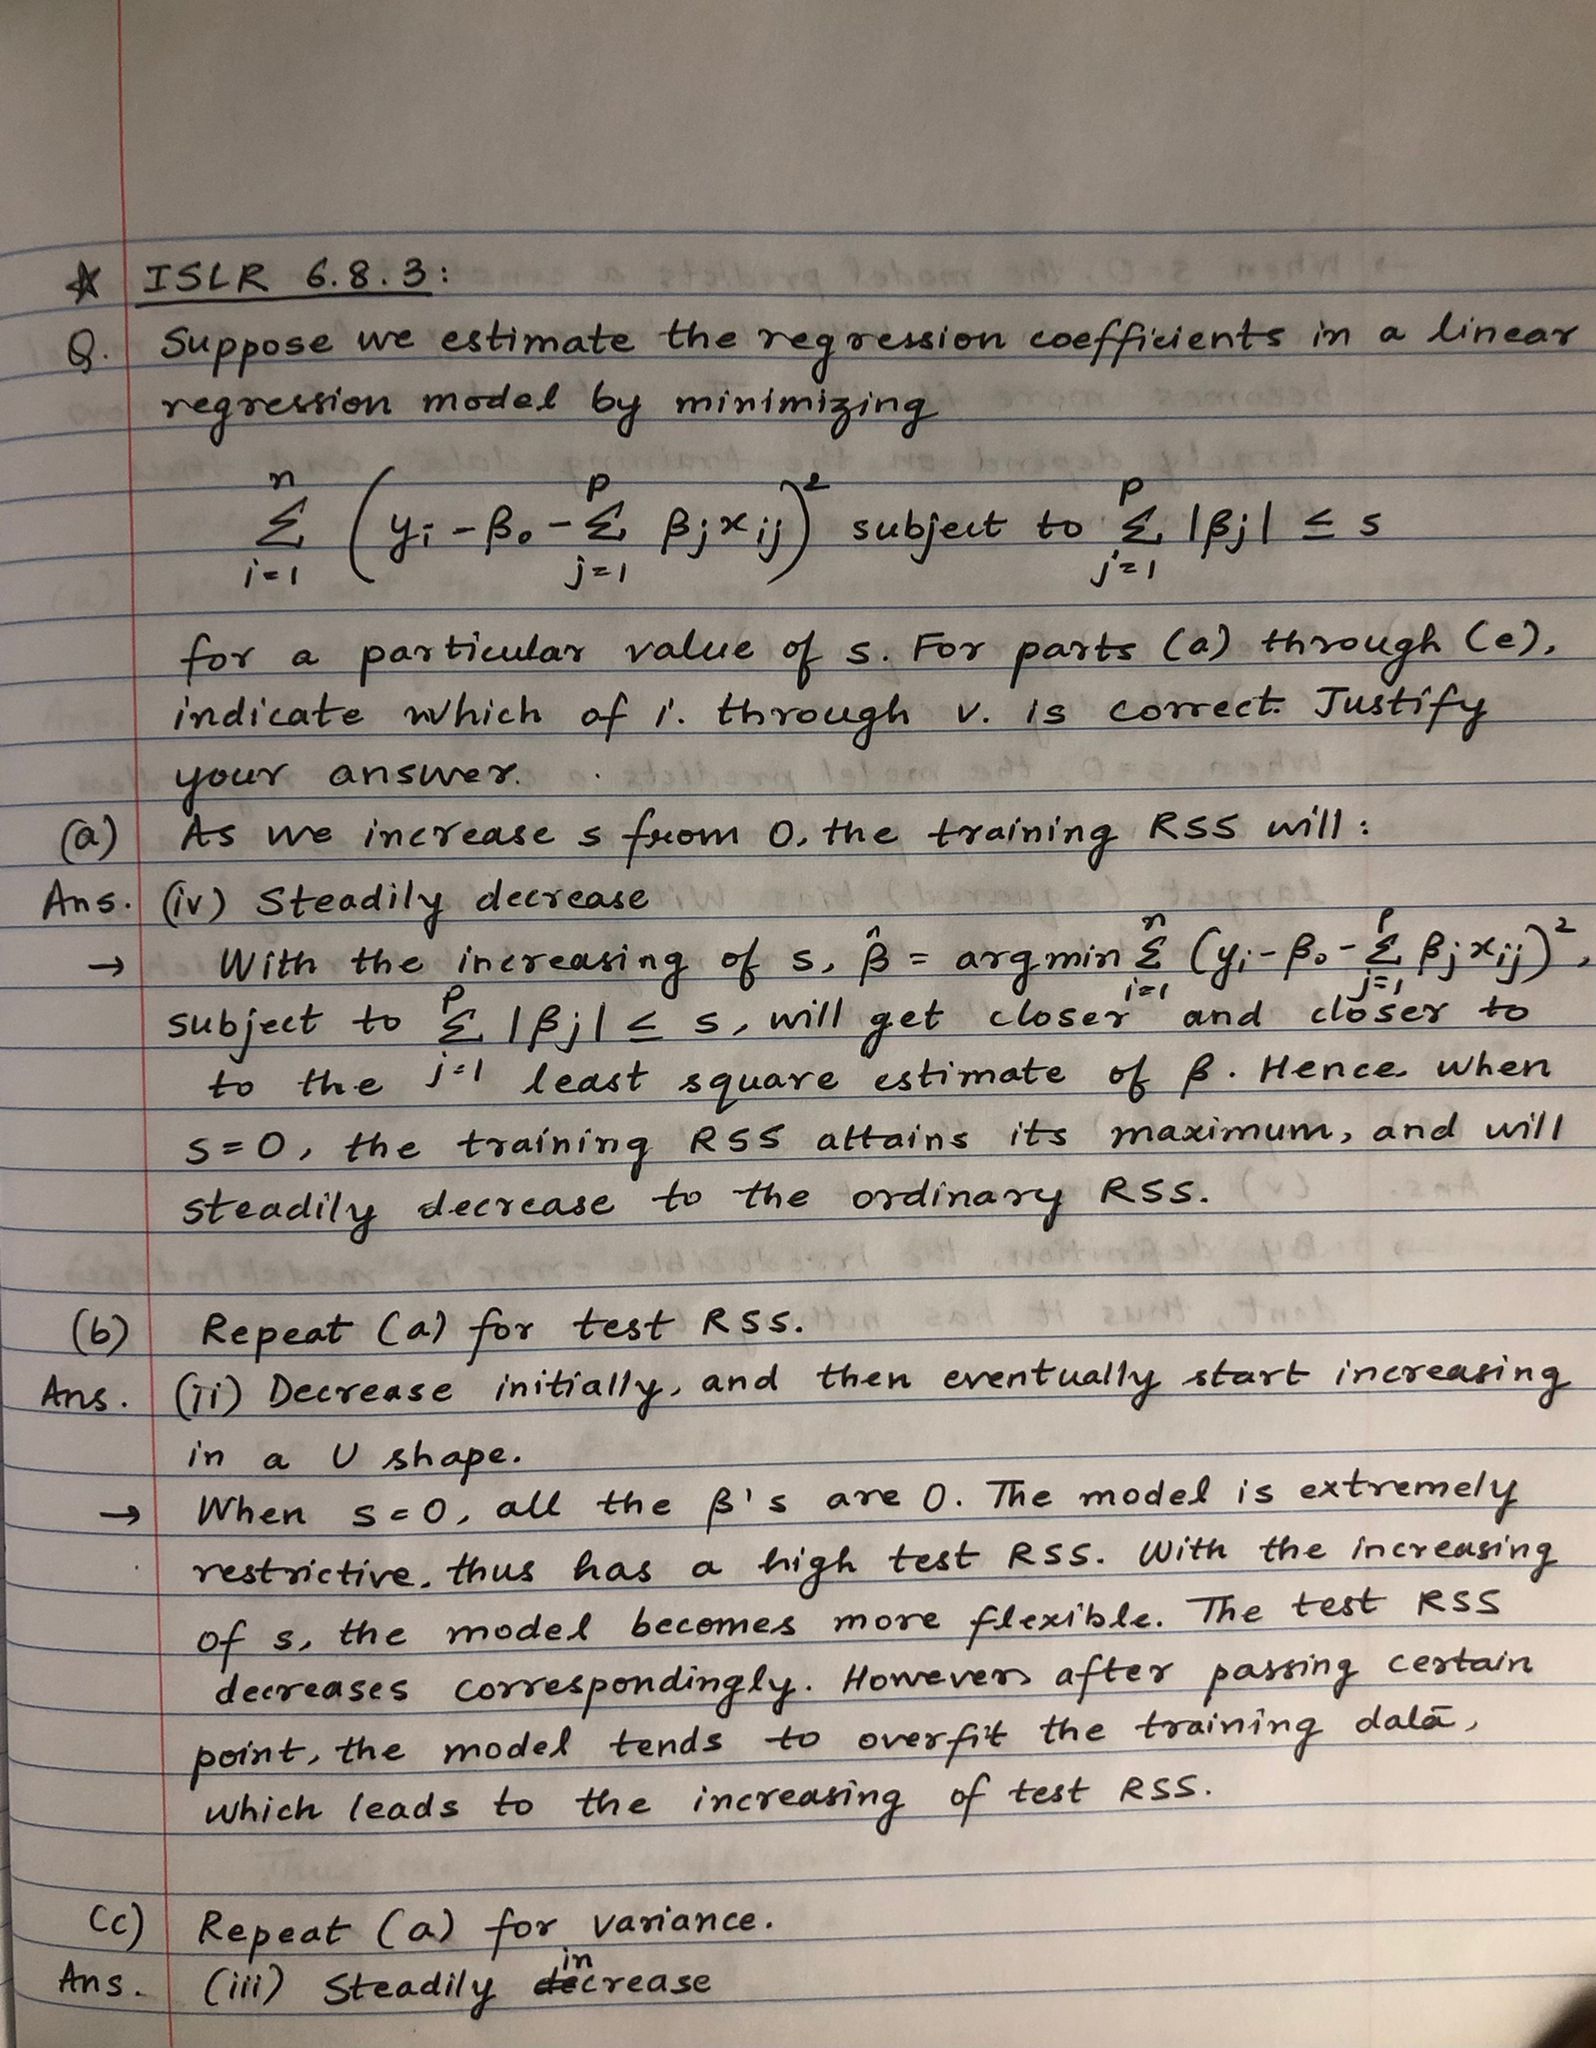 ☆ ISLR 6.8.3:
Q. Suppose we estimate the regression coefficients in a linear
regression model by minimizing
n∑i=1 (yi - β0 - p∑j=1 βjxij)² subject to p∑j=1 |βj| ≤ s
for a particular value of s. For parts (a) through (e),
indicate which of i. through v. is correct. Justify
your answer.
(a) As we increase s from 0, the training RSS will:
Ans. (iv) Steadily decrease
→ With the increasing of s, β̂ = argmin n∑i=1 (yi - β0 - p∑j=1 βjxij)²,
subject to p∑j=1 |βj| ≤ s, will get closer and closer to
to the least square estimate of β. Hence when
s=0, the training RSS attains its maximum, and will
steadily decrease to the ordinary RSS.
(b) Repeat (a) for test RSS.
Ans. (ii) Decrease initially, and then eventually start increasing
in a U shape.
→ When s=0, all the β's are 0. The model is extremely
restrictive, thus has a high test RSS. With the increasing
of s, the model becomes more flexible. The test RSS
decreases correspondingly. However, after passing certain
point, the model tends to overfit the training data,
which leads to the increasing of test RSS.
(c) Repeat (a) for variance.
Ans. (iii) Steadily increase